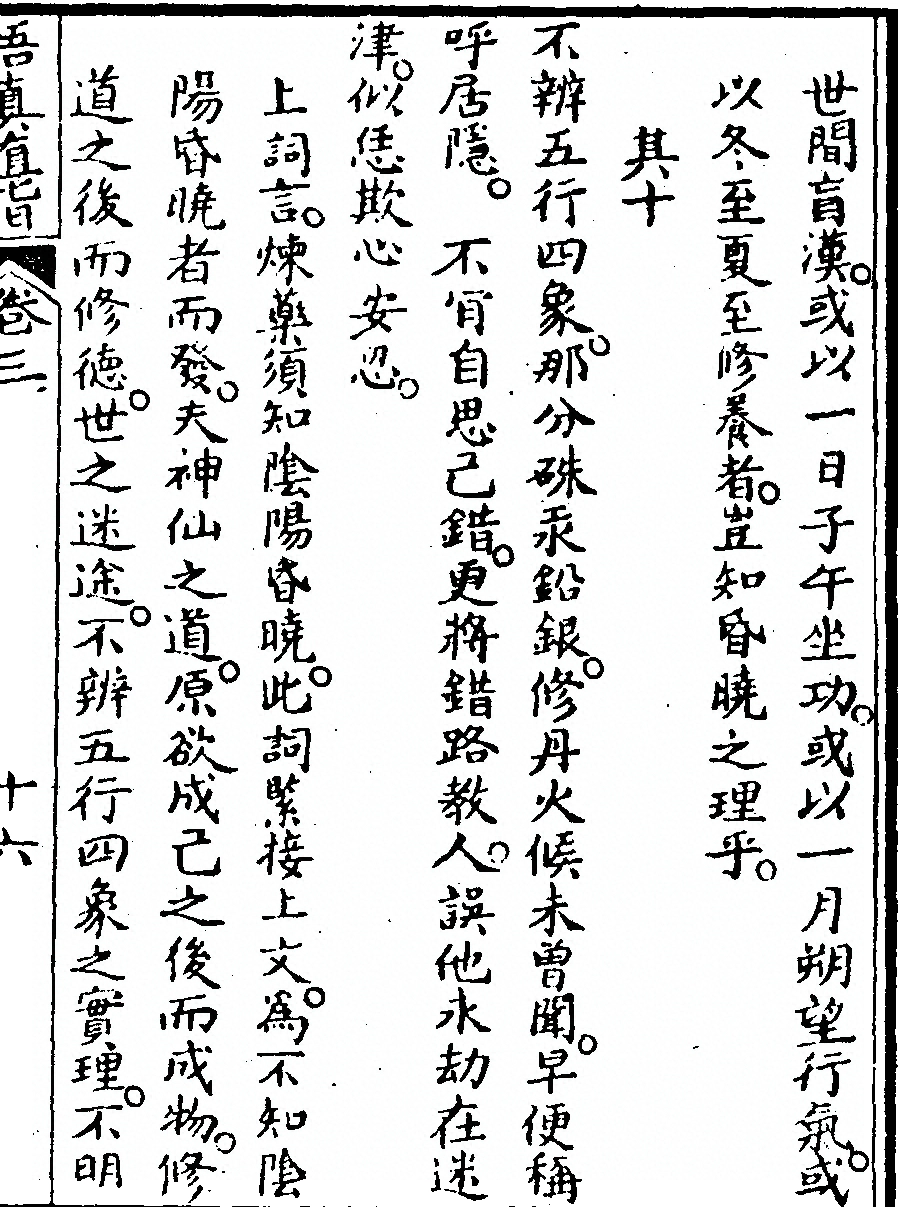 世間盲漢。或以一日子午坐功。或以一月朔望行氣。或
以冬至夏至修養者。豈知昏曉之理乎。
其十
不辨五行四象。那分硃汞鉛銀。修丹火候未曾聞。早便稱
呼居隱。　不肯自思己錯。更將錯路教人。誤他永劫在迷
津。似恁欺心安忍。
上詞言。煉藥須知陰陽昏曉。此詞緊接上文。為不知陰
陽昏曉者而發。夫神仙之道。原欲成己之後而成物。修
道之後而修德。世之迷途。不辨五行四象之實理。不明
悟真直指
卷三
十六